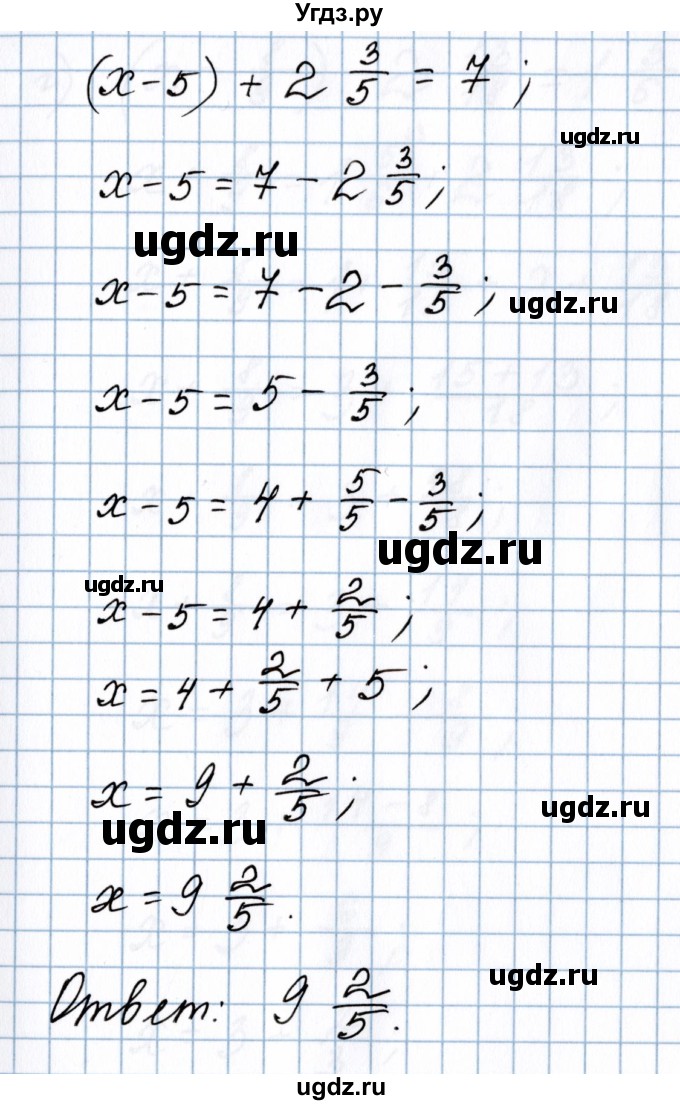 Угдз.ру
(x - 5) + 2 3/5 = 7 ;
ugdz.ru
x - 5 = 7 - 2 3/5 ;
ugdz.ru
x - 5 = 7 - 2 - 3/5 ;
ugdz.ru
x - 5 = 5 - 3/5 ;
x - 5 = 4 + 5/5 - 3/5 ;
ugdz.ru
ugdz.ru
x - 5 = 4 + 2/5 ;
x = 4 + 2/5 + 5 ;
x = 9 + 2/5 ;
ugdz.ru
ugdz.ru
x = 9 2/5 .
ugdz.ru
Ответ: 9 2/5 .
ugdz.ru